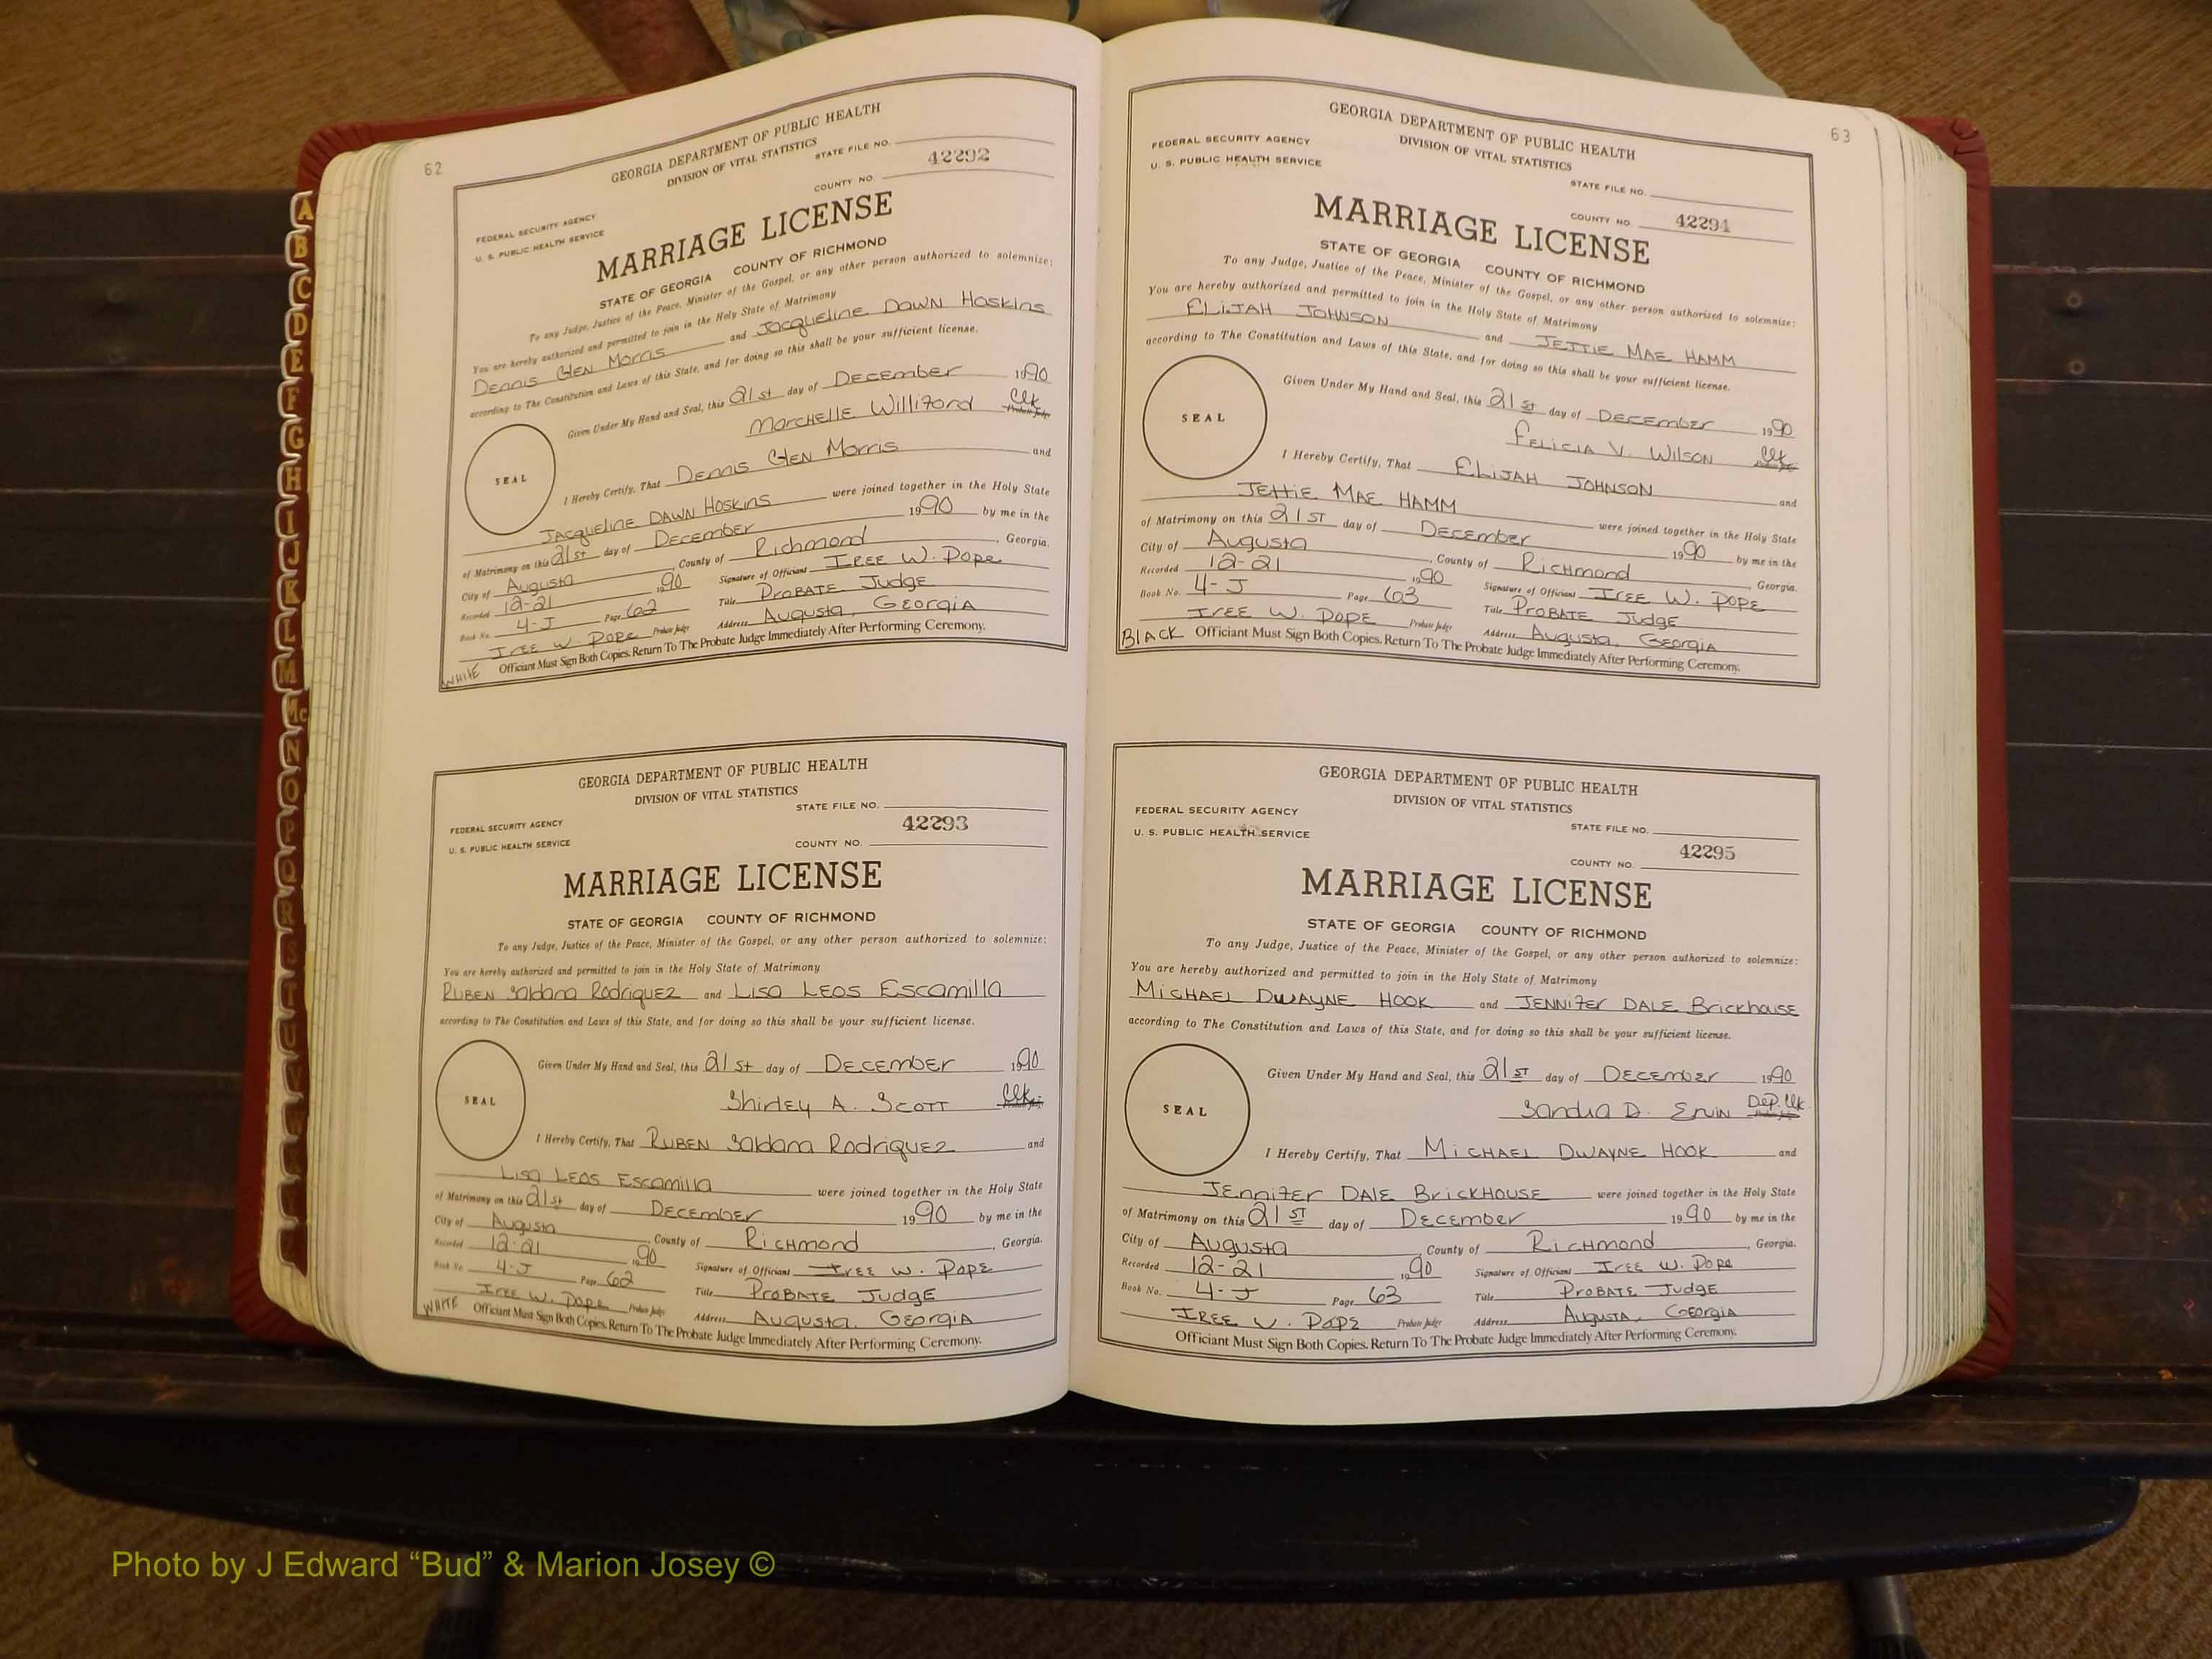 62
GEORGIA DEPARTMENT OF PUBLIC HEALTH
DIVISION OF VITAL STATISTICS
STATE FILE NO.
42292
COUNTY NO.
FEDERAL SECURITY AGENCY
U. S. PUBLIC HEALTH SERVICE
MARRIAGE LICENSE
STATE OF GEORGIA COUNTY OF RICHMOND
To any Judge, Justice of the Peace, Minister of the Gospel, or any other person authorized to solemnize:
You are hereby authorized and permitted to join in the Holy State of Matrimony
Dennis Glen Morris and Jacqueline Dawn Hoskins
according to The Constitution and Laws of this State, and for doing so this shall be your sufficient license.
Given Under My Hand and Seal, this 21st day of December 1990
Marchelle Williford Clk
Probate Judge
SEAL
I Hereby Certify, That Dennis Glen Morris and
Jacqueline Dawn Hoskins were joined together in the Holy State
of Matrimony on this 21st day of December 1990 by me in the
City of Augusta, County of Richmond, Georgia.
Recorded 12-21 1990 Signature of Officiant Iree W. Pope
Book No. 4-J Page 62 Title Probate Judge
Iree W. Pope Probate Judge Address Augusta, Georgia
WHITE Officiant Must Sign Both Copies. Return To The Probate Judge Immediately After Performing Ceremony.
GEORGIA DEPARTMENT OF PUBLIC HEALTH
DIVISION OF VITAL STATISTICS
STATE FILE NO.
FEDERAL SECURITY AGENCY
42293
U. S. PUBLIC HEALTH SERVICE
COUNTY NO.
MARRIAGE LICENSE
STATE OF GEORGIA COUNTY OF RICHMOND
To any Judge, Justice of the Peace, Minister of the Gospel, or any other person authorized to solemnize:
You are hereby authorized and permitted to join in the Holy State of Matrimony
Ruben Saldana Rodriquez and Lisa Leos Escamilla
according to The Constitution and Laws of this State, and for doing so this shall be your sufficient license.
Given Under My Hand and Seal, this 21st day of December 1990
Shirley A. Scott Clk
Probate Judge
SEAL
I Hereby Certify, That Ruben Saldana Rodriquez and
Lisa Leos Escamilla were joined together in the Holy State
of Matrimony on this 21st day of December 1990 by me in the
City of Augusta, County of Richmond, Georgia.
Recorded 12-21 1990 Signature of Officiant Iree W. Pope
Book No. 4-J Page 62 Title Probate Judge
Iree W. Pope Probate Judge Address Augusta, Georgia
WHITE Officiant Must Sign Both Copies. Return To The Probate Judge Immediately After Performing Ceremony.
63
GEORGIA DEPARTMENT OF PUBLIC HEALTH
DIVISION OF VITAL STATISTICS
FEDERAL SECURITY AGENCY
U. S. PUBLIC HEALTH SERVICE
STATE FILE NO.
COUNTY NO. 42294
MARRIAGE LICENSE
STATE OF GEORGIA COUNTY OF RICHMOND
To any Judge, Justice of the Peace, Minister of the Gospel, or any other person authorized to solemnize:
You are hereby authorized and permitted to join in the Holy State of Matrimony
Elijah Johnson and Jettie Mae Hamm
according to The Constitution and Laws of this State, and for doing so this shall be your sufficient license.
Given Under My Hand and Seal, this 21st day of December 1990
Felicia V. Wilson Clk
Probate Judge
SEAL
I Hereby Certify, That Elijah Johnson and
Jettie Mae Hamm were joined together in the Holy State
of Matrimony on this 21st day of December 1990 by me in the
City of Augusta, County of Richmond, Georgia.
Recorded 12-21 1990 Signature of Officiant Iree W. Pope
Book No. 4-J Page 63 Title Probate Judge
Iree W. Pope Probate Judge Address Augusta, Georgia
BLACK Officiant Must Sign Both Copies. Return To The Probate Judge Immediately After Performing Ceremony.
GEORGIA DEPARTMENT OF PUBLIC HEALTH
DIVISION OF VITAL STATISTICS
FEDERAL SECURITY AGENCY
U. S. PUBLIC HEALTH SERVICE
STATE FILE NO.
42295
COUNTY NO.
MARRIAGE LICENSE
STATE OF GEORGIA COUNTY OF RICHMOND
To any Judge, Justice of the Peace, Minister of the Gospel, or any other person authorized to solemnize:
You are hereby authorized and permitted to join in the Holy State of Matrimony
Michael Dwayne Hook and Jennifer Dale Brickhouse
according to The Constitution and Laws of this State, and for doing so this shall be your sufficient license.
Given Under My Hand and Seal, this 21st day of December 1990
Sandra D. Ervin Dep. Clk.
Probate Judge
SEAL
I Hereby Certify, That Michael Dwayne Hook and
Jennifer Dale Brickhouse were joined together in the Holy State
of Matrimony on this 21st day of December 1990 by me in the
City of Augusta, County of Richmond, Georgia.
Recorded 12-21 1990 Signature of Officiant Iree W. Pope
Book No. 4-J Page 63 Title Probate Judge
Iree W. Pope Probate Judge Address Augusta, Georgia
Officiant Must Sign Both Copies. Return To The Probate Judge Immediately After Performing Ceremony.
A
B
C
D
E
F
G
H
I
J
K
L
M
Mc
N
O
P
Q
R
S
T
U
V
Photo by J Edward “Bud” & Marion Josey ©